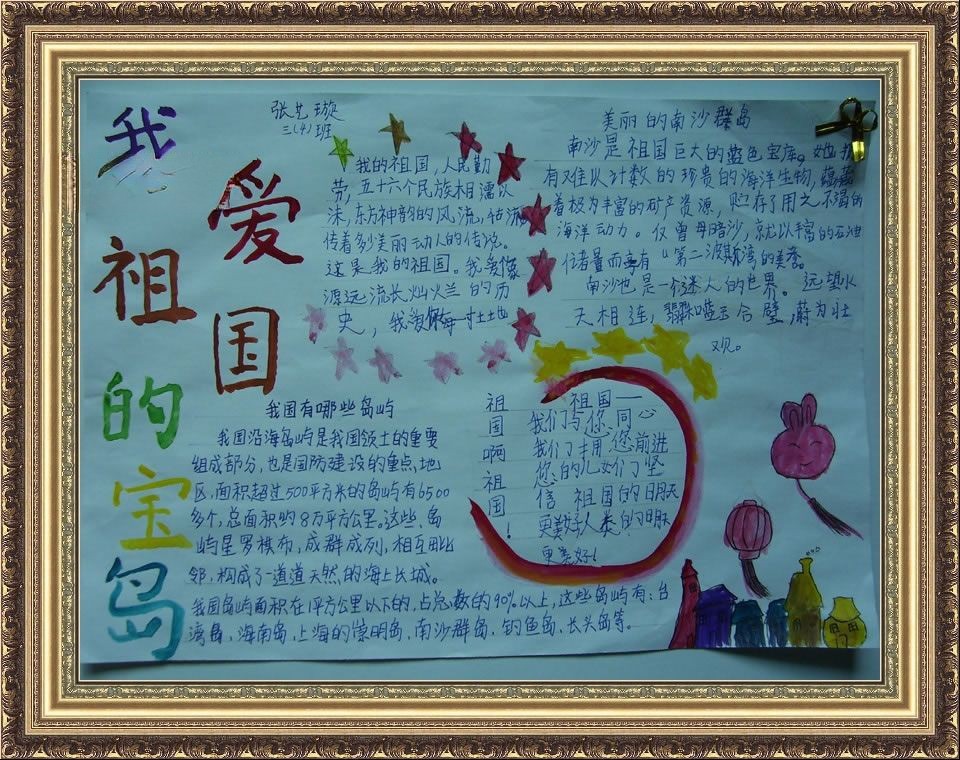 我爱祖国的宝岛
张艺璇
三(4)班
我的祖国，人民勤
劳，五十六个民族相濡以
沫，东方神韵的风流，估流
传着多少美丽动人的传说。
这是我的祖国。我爱像
源远流长灿火兰的历
史，我爱每一寸土地
美丽的南沙群岛
南沙是祖国巨大的蓝色宝库。她拥
有难以计数的珍贵的海洋生物，蕴藏
着极为丰富的矿产资源，贮存了用之不竭的
海洋动力。仅曾母暗沙，就以丰富的石油
储量而享有“第二波斯湾的美季。
南沙也是一个迷人的世界。远望水
天相连，合璧，蔚为壮
观。
我国有哪些岛屿
我国沿海岛屿是我国领土的重要
组成部分，也是国防建设的重点地
区，面积超过500平方米的岛屿有6500
多个，总面积约8万平方公里。这些岛
屿星罗棋布，成群成列，相互毗
邻，构成了一道道天然的海上长城。
我国岛屿面积在1平方公里以下的，占总数的90%以上，这些岛屿有：台
湾岛，海南岛，上海的崇明岛，南沙群岛，钓鱼岛，长头岛等。
祖国啊祖国！
祖国一
我们与你同心
我们才用您前进
您的儿女们坚
信 祖国的明天
更美好人类的明天
更美好！